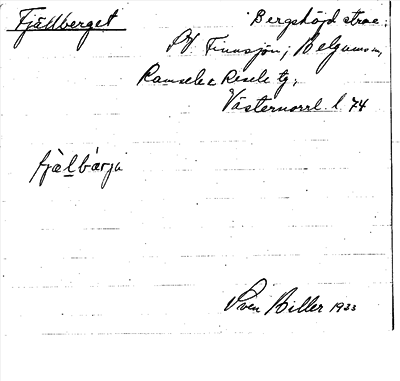 Fjällberget
Bergshöjd strax
N. Finnsjön, Helgumsn,
Ramsele o Resele tg,
Västernorrl. l. 74
fjæ̀lbárja
Sven Hiller 1933